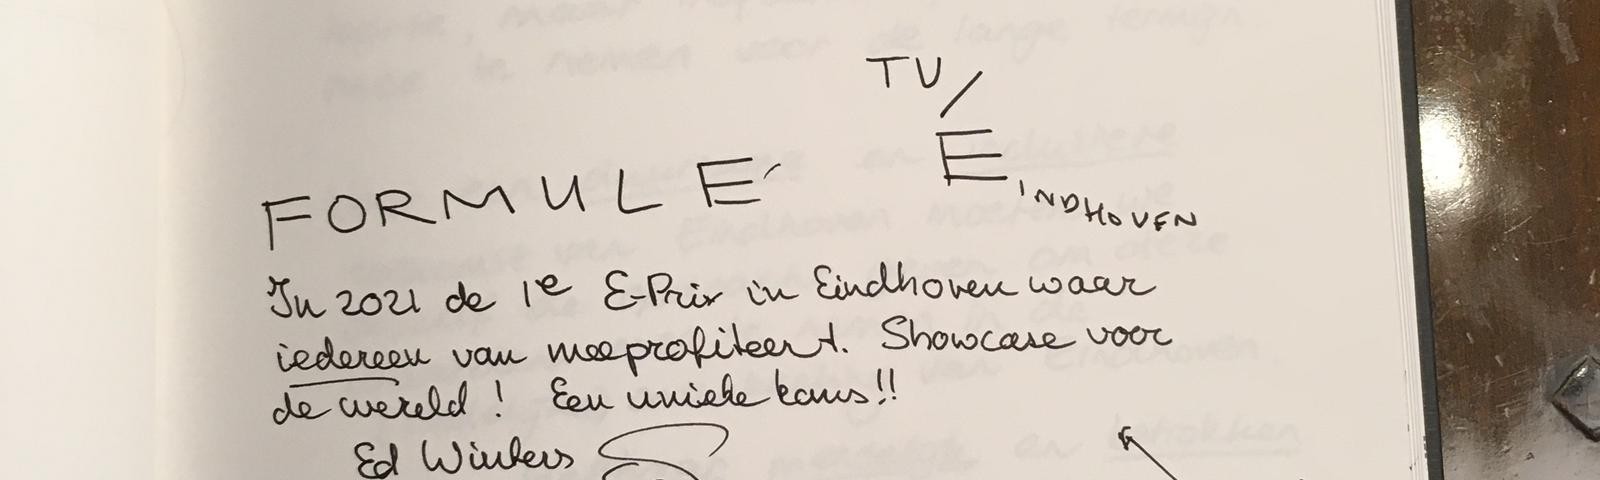 TU/
E
INDHOVEN
FORMULE
In 2021 de 1e E-Prix in Eindhoven waar
iedereen van meeprofiteert. Showcase voor
de wereld! Een unieke kans!!
Ed Winters